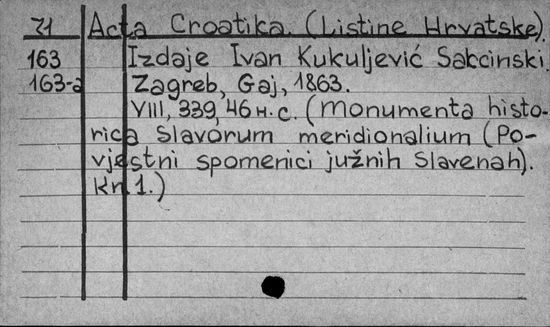 71 Acta Croatika. (Listine Hrvatske).
163 Izdaje Ivan Kukuljević Sakcinski.
163-a Zagreb, Gaj, 1863.
VIII, 339, 46 н. с. (Monumenta histo-
rica Slavorum meridionalium (Po-
vjestni spomenici južnih Slavenah).
Kn. 1.)